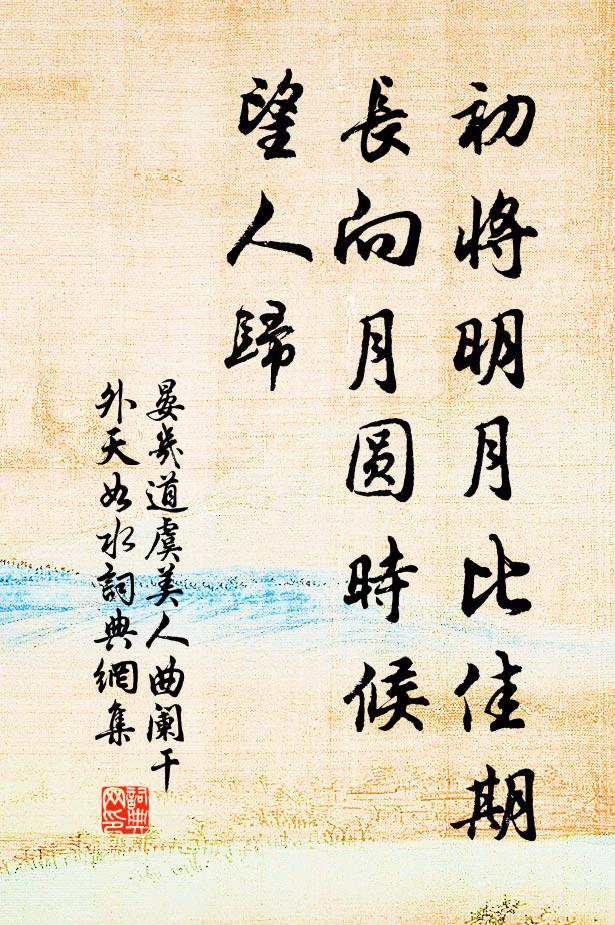 初將明月比佳期
長向月圆時候
望人歸
晏幾道虞美人曲阑干
外天如水詞典網集
詞典
网印